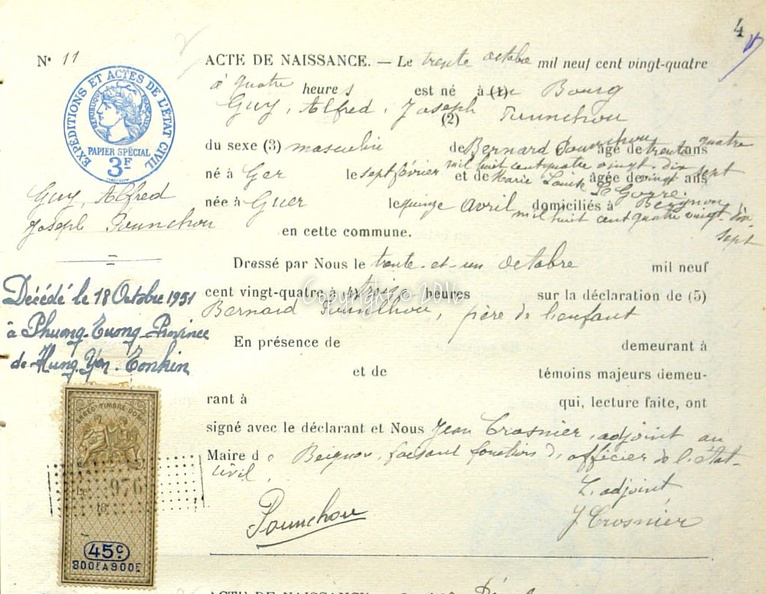 4
N° 11
ACTE DE NAISSANCE. — Le trente octobre mil neuf cent vingt-quatre
à quatre heures est né à (1) Le Bourg
Guy, Alfred, Joseph Pounchou
(2)
du sexe (3) masculin de Bernard Pounchou âgé de trente quatre ans
né à Ger le sept février mil huit cent quatre vingt dix et de Marie Louise Le Goyre. âgée de vingt sept ans
née à Guer le quinze avril mil huit cent quatre vingt dix sept domiciliés à Beignon
en cette commune.
Dressé par Nous le trente-et-un octobre mil neuf
cent vingt-quatre à heures sur la déclaration de (5)
Bernard Pounchou, père de l'enfant
En présence de demeurant à
et de témoins majeurs demeu-
rant à qui, lecture faite, ont
signé avec le déclarant et Nous Jean Crosnier, adjoint au
Maire de Beignon, faisant fonctions d'officier de l'état-
civil.
L'adjoint,
Pounchou
J Crosnier
EXPEDITIONS ET ACTES DE L'ETAT CIVIL
PAPIER SPÉCIAL
3F
Guy, Alfred
Joseph Pounchou
Décédé le 18 Octobre 1951
à Phuong-Tuong-Province
de Hung Yen-Tonkin
976
45c
800F A 900F
Copyright © 2016
ACTE DE NAISSANCE